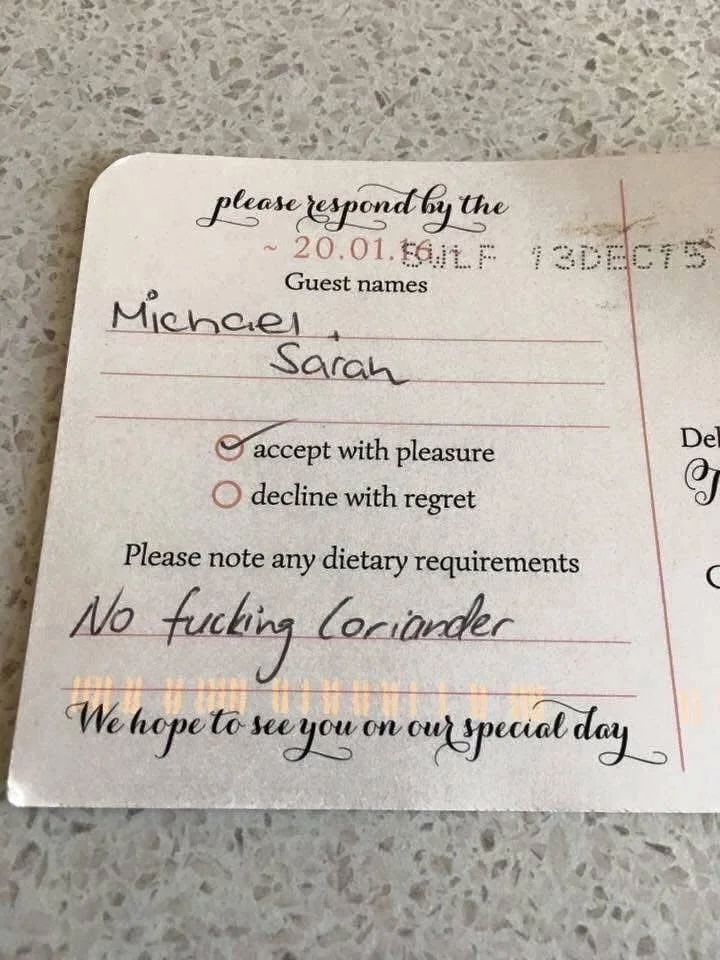 please respond by the
~ 20.01.16 ~
13DEC15
Guest names
Michael +
Sarah
accept with pleasure
decline with regret
Please note any dietary requirements
No fucking Coriander
We hope to see you on our special day